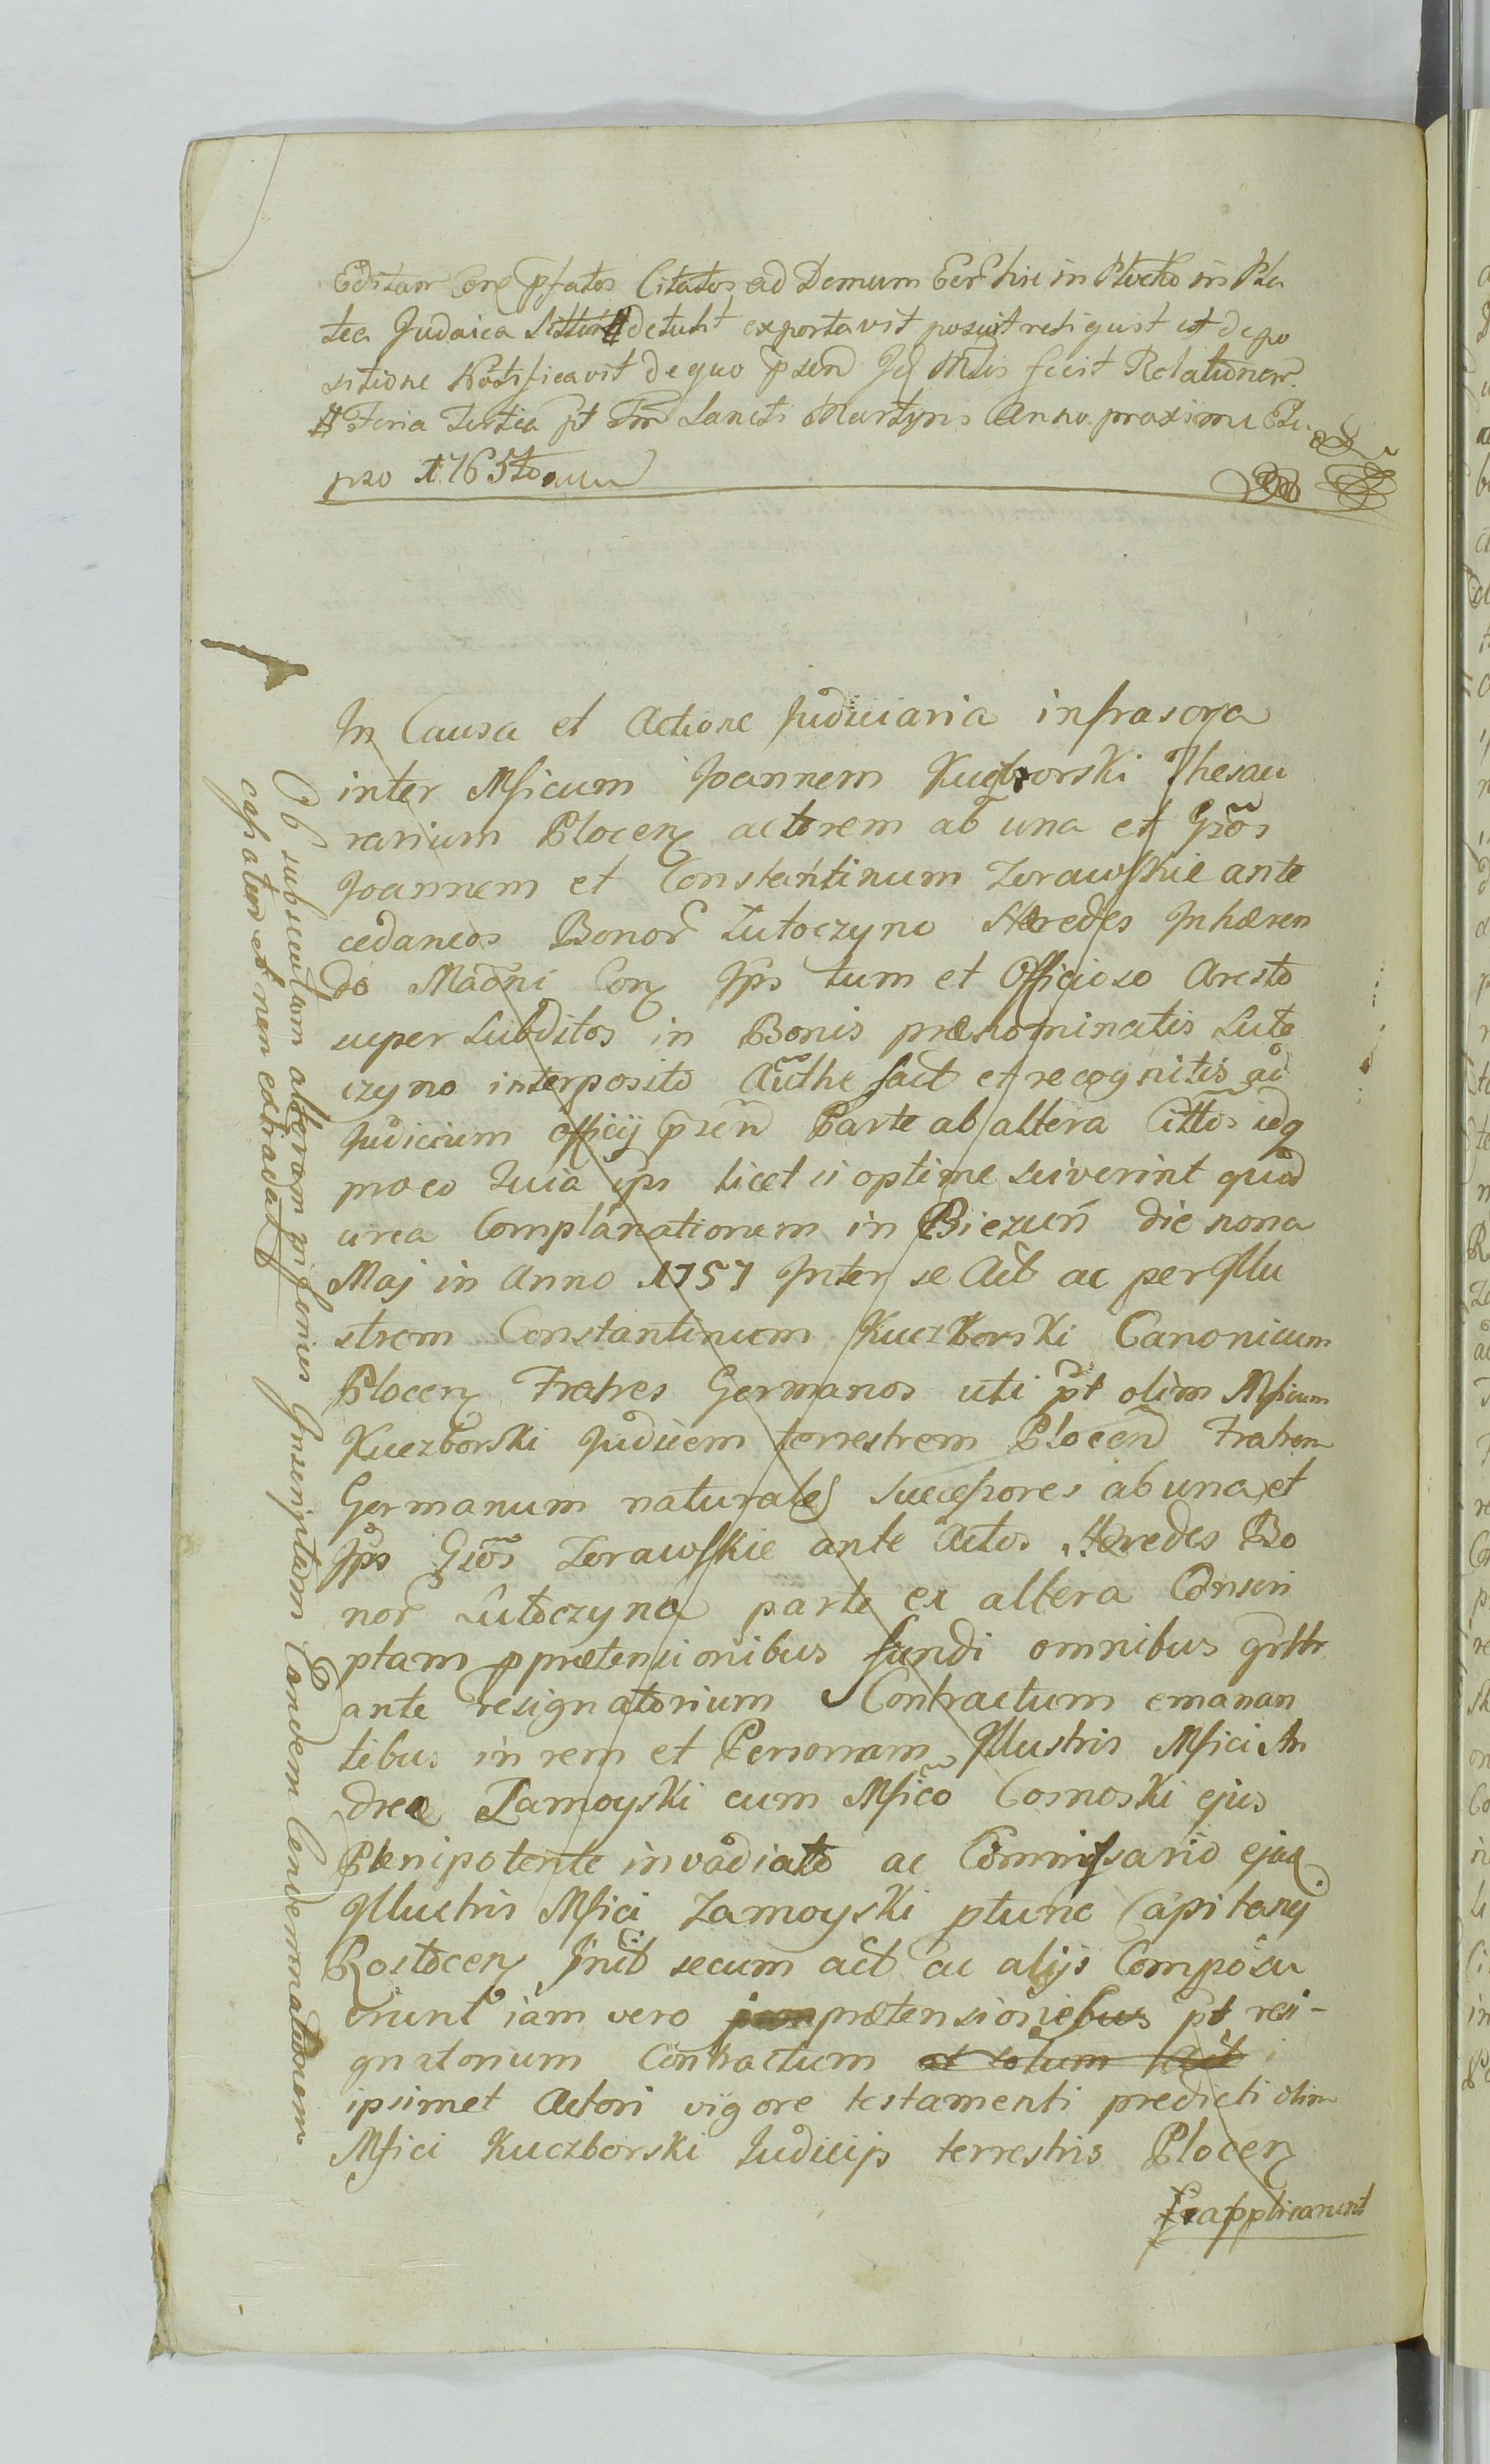 Editam Cenς pfatos Citatos ad Domum Eorū hic in Płocko in Pla
tea Judaica Sittum detulit exportavit posuit reliquit et depo
sitione Notificavit de quo psen Jud Mtlis fecit Relationem
Feria Tertia pt Fm Sancti Martyns Anno proximu Ela
pso 1765to
In Causa et Actione Judiciaria infrascrpa
inter Mficum Joannem Kuczborski Thesau
rarium Plocenς actorem ab una et Gsōs
Joannem et Constantinum Zorawskie ante
cedaneos Bonor̄ Lutoczyno Hæredes Inhæren
do Maōni Conς Jps tum et Officioso Aresto
super Subditos in Bonis prænominatis Luto
czyno interposito Aūthe fact et recognitis ad
Judicium officij psen Parte ab altera Cittōs ideq
pro eo Quia ips licet si optime sciverint quod
circa Complanationem in Biezuń die nona
Maj in Anno 1757 Inter se Act ac perIllu
strem Constantinum Kuczborski Canonicum
Plocenς Fratres Germanos uti pt olim Mficum
Kuczborski Judicem terrestrem Plocen Fratrem
Germanum naturales Successores ab una et
Jps Gsōs Zorawskie ante Actos Hæredes Bo
nor̄ Lutoczyno parte ex altera Conscri
ptam pprætensionibus fundi omnibus grlttr
ante resignatorium Contractum emanan
tibus in rem et Personam Illustris Mfici An
dreæ Zamoyski cum Mfico Cosnoski ejus
Plenipotente invadiato ac Commissario ejusq
Illustris Mfici Zamoyski ptunc Capitanei
Rostocenς Jnit secum act ac alijs Composu
erunt iam vero prætensionebus pt resi-
gnatorium Contractum et solum Act
ipsimet Actori vigore testamenti predicti olim
Mfici Kuczborski Judicijs terrestris Plocenς
applicarunt
Ob subsecutam alteram pr fonies Inscriptam Eandem Condemnationem
cassatur et non extradat